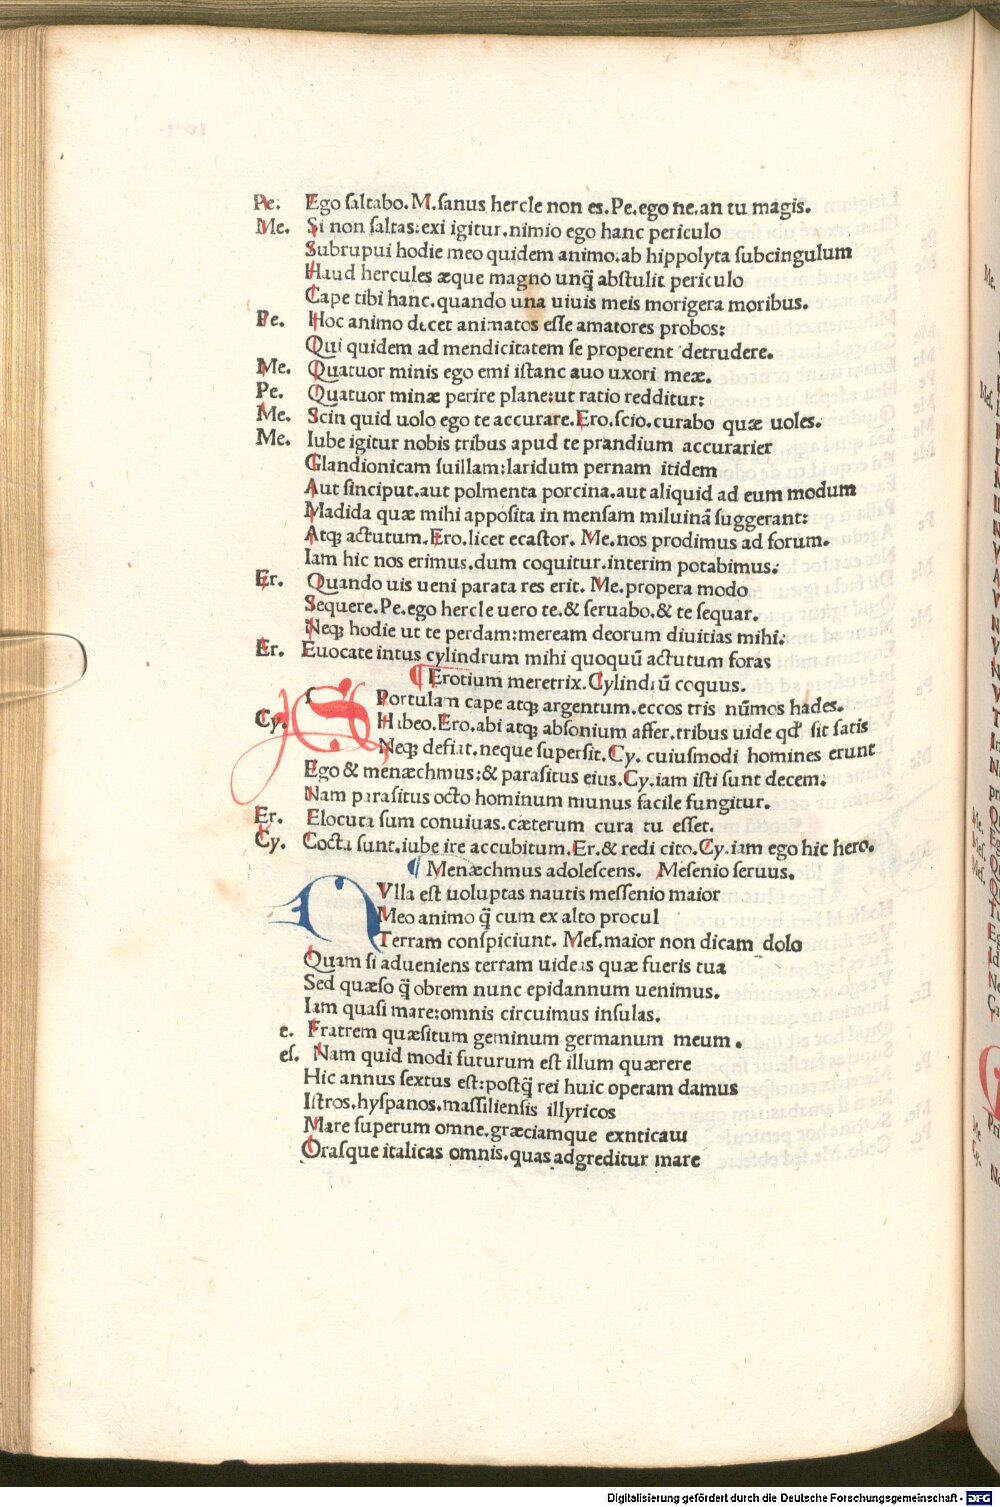 Pe. Ego ſaltabo.M.ſanus hercle non es.Pe.ego ne.an tu magis.
Me. Si non ſaltas:exi igitur.nimio ego hanc periculo
Subrupui hodie meo quidem animo.ab hippolyta ſubcingulum
Haud hercules æque magno unq̃ abſtulit periculo
Cape tibi hanc.quando una uiuis meis morigera moribus.
Pe. Hoc animo decet animatos eſſe amatores probos:
Qui quidem ad mendicitatem ſe properent detrudere.
Me. Quatuor minis ego emi iſtanc auo uxori meæ.
Pe. Quatuor minæ perire plane:ut ratio redditur:
Me. Scin quid uolo ego te accurare.Ero.ſcio.curabo quæ uoles.
Me. Iube igitur nobis tribus apud te prandium accurarier
Glandionicam ſuillam:laridum pernam itidem
Aut ſinciput.aut polmenta porcina.aut aliquid ad eum modum
Madida quæ mihi appoſita in menſam miluinã ſuggerant:
Atq; actutum.Ero.licet ecaſtor. Me.nos prodimus ad forum.
Iam hic nos erimus.dum coquitur.interim potabimus:
Er. Quando uis ueni parata res erit. Me.propera modo
Sequere.Pe.ego hercle uero te.& ſeruabo.& te ſequar.
Neq; hodie ut te perdam:meream deorum diuitias mihi:
Er. Euocate intus cylindrum mihi quoquũ actutum foras
¶ Erotium meretrix.Cylindrũ coquus.
S Portulam cape atq; argentum.eccos tris nũmos hades.
Cy. Habeo.Ero.abi atq; abſonium affer.tribus uide qd' ſit ſatis
Neq; defiat.neque ſuperſit.Cy. cuiuſmodi homines erunt
Ego & menæchmus:& paraſitus eius.Cy.iam iſti ſunt decem:
Nam paraſitus octo hominum munus facile fungitur.
Er. Elocuta ſum conuiuas.cæterum cura tu eſſet.
Cy. Cocta ſunt.iube ire accubitum.Er.& redi cito.Cy.iam ego hic hero.
¶ Menæchmus adoleſcens. Meſenio ſeruus.
N Vlla eſt uoluptas nautis meſſenio maior
Meo animo q̃ cum ex alto procul
Terram conſpiciunt. Meſ.maior non dicam dolo
Quam ſi adueniens terram uideas quæ fueris tua
Sed quæſo q̃ obrem nunc epidannum uenimus.
Iam quaſi mare:omnis circuimus inſulas.
e. Fratrem quæſitum geminum germanum meum.
eſ. Nam quid modi futurum eſt illum quærere
Hic annus ſextus eſt:poſtq̃ rei huic operam damus
Iſtros.hyſpanos.maſſilienſis illyricos
Mare ſuperum omne.græciamque exnticam
Oraſque italicas omnis.quas adgreditur mare
Digitalisierung gefördert durch die Deutsche Forschungsgemeinschaft - DFG